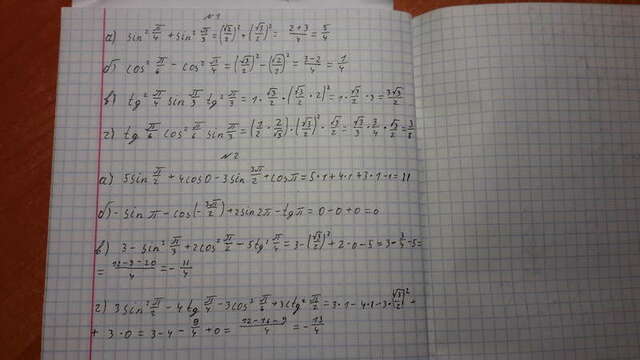 №1
а) sin² π/4 + sin² π/3 = (√2/2)² + (√3/2)² = (2+3)/4 = 5/4
б) cos² π/6 - cos² π/4 = (√3/2)² - (√2/2)² = (3-2)/4 = 1/4
в) tg² π/4 sin π/3 tg² π/3 = 1 · √3/2 · (√3/2 · 2)² = 1 · √3/2 · 3 = 3√3/2
г) tg π/6 cos² π/6 sin π/3 = (1/2 · 2/√3) · (√3/2)² · √3/2 = √3/3 · 3/4 · √3/2 = 3/8
№2
а) 5sin π/2 + 4cos0 - 3sin 3π/2 + cosπ = 5·1 + 4·1 + 3·1 - 1 = 11
б) - sin π - cos(- 3π/2) + 2sin 2π - tg π = 0 - 0 + 0 = 0
в) 3 - sin² π/3 + 2cos² π/2 - 5tg² π/4 = 3 - (√3/2)² + 2·0 - 5 = 3 - 3/4 - 5 =
= (12-3-20)/4 = - 11/4
г) 3sin² π/2 - 4tg² π/4 - 3cos² π/6 + 3ctg² π/2 = 3·1 - 4·1 - 3·(√3/2)² +
+ 3·0 = 3 - 4 - 9/4 + 0 = (12-16-9)/4 = - 13/4